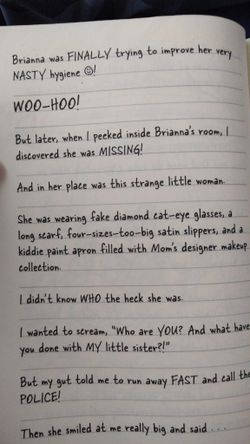 Brianna was FINALLY trying to improve her very
NASTY hygiene ☺!
WOO-HOO!
But later, when I peeked inside Brianna's room, I
discovered she was MISSING!
And in her place was this strange little woman.
She was wearing fake diamond cat-eye glasses, a
long scarf, four-sizes-too-big satin slippers, and a
kiddie paint apron filled with Mom's designer makeup
collection.
I didn't know WHO the heck she was.
I wanted to scream, "Who are YOU? And what have
you done with MY little sister?!"
But my gut told me to run away FAST and call the
POLICE!
Then she smiled at me really big and said . . .